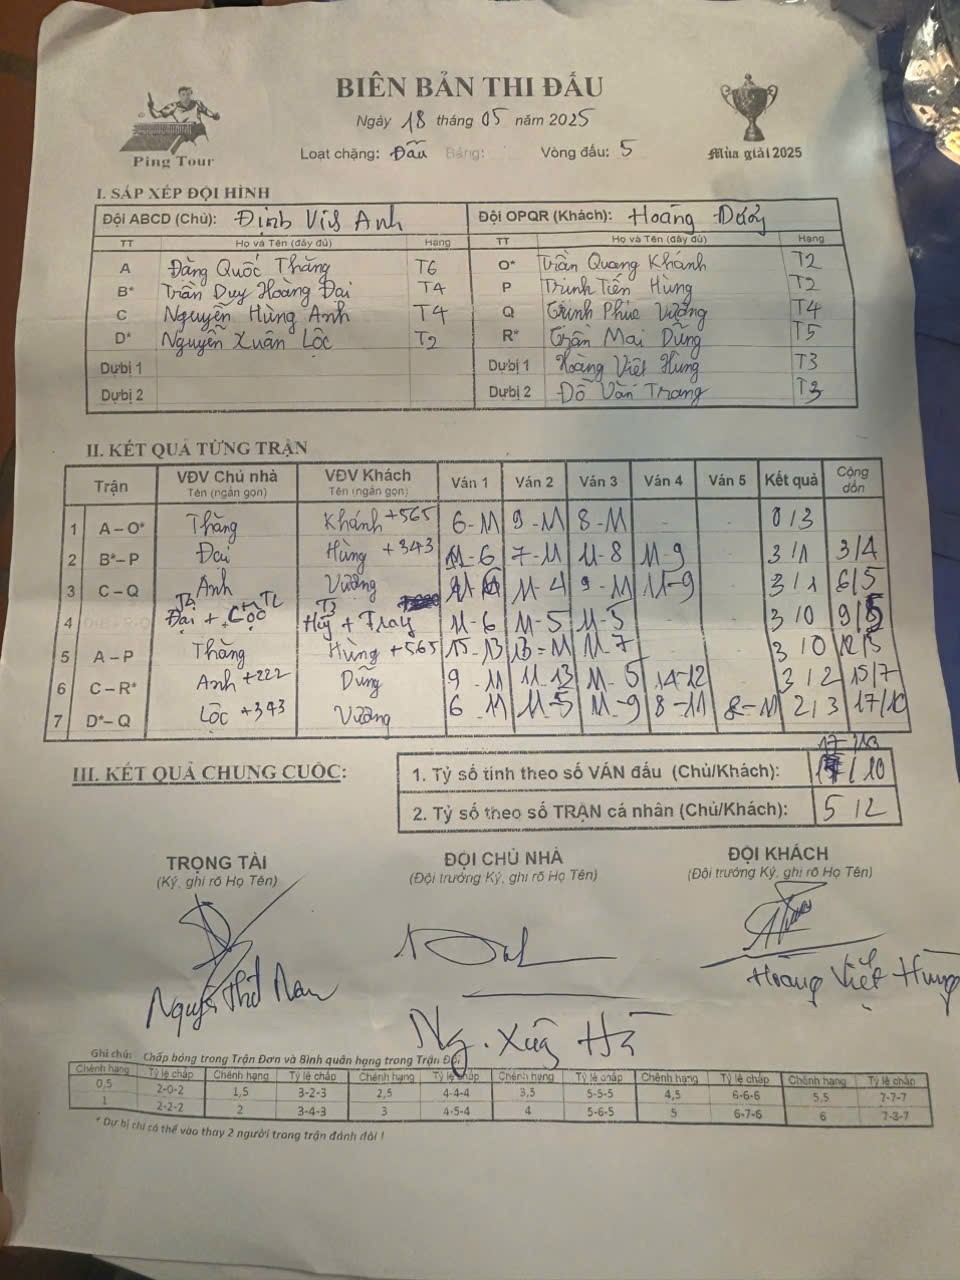 BIÊN BẢN THI ĐẤU
Ngày 18 tháng 05 năm 2025
Ping Tour
Loạt chặng: Đấu Bảng: Vòng đấu: 5
Mùa giải 2025
I. SẮP XẾP ĐỘI HÌNH
Đội ABCD (Chủ): Định Việt Anh Đội OPQR (Khách): Hoàng
TT Họ và Tên (đầy đủ) Hạng TT Họ và Tên (đầy đủ) Hạng
A Đặng Quốc Thắng T6 O* Trần Quang Khánh T2
B* Trần Duy Hoàng Đại T4 P Trịnh Tiến Hùng T2
C Nguyễn Hùng Anh T4 Q Trịnh Phúc Vượng T4
D* Nguyễn Xuân Lộc T2 R* Trần Mai Dũng T5
Dự bị 1 Dự bị 1 Hoàng Việt Hưng T3
Dự bị 2 Dự bị 2 Đỗ Văn Trang T3
II. KẾT QUẢ TỪNG TRẬN
Trận VĐV Chủ nhà Tên (ngắn gọn) VĐV Khách Tên (ngắn gọn) Ván 1 Ván 2 Ván 3 Ván 4 Ván 5 Kết quả Cộng dồn
1 A – O* Thắng Khánh +565 6-11 9-11 8-11 - - 0/3
2 B* – P Đại Hùng +343 11-6 7-11 11-8 11-9 - 3/1 3/4
3 C – Q Anh Vượng 11-4 9-11 11-9 - 3/1 6/5
4 Đại T4 + Lộc T2 T3 + 11-6 11-5 11-5 - - 3/0 9/5
5 A – P Thắng Hùng +565 15-13 13-11 11-7 - - 3/0 12/5
6 C – R* Anh +222 Dũng 9-11 11-13 11-5 14-12 - 3/2 15/7
7 D* – Q Lộc +343 Vượng 6-11 11-5 11-9 8-11 8-11 2/3 17/10
III. KẾT QUẢ CHUNG CUỘC:
1. Tỷ số tính theo số VÁN đấu (Chủ/Khách): 17/10
2. Tỷ số theo số TRẬN cá nhân (Chủ/Khách): 5/2
TRỌNG TÀI ĐỘI CHỦ NHÀ ĐỘI KHÁCH
(Ký, ghi rõ Họ Tên) (Đội trưởng Ký, ghi rõ Họ Tên) (Đội trưởng Ký, ghi rõ Họ Tên)
Hoàng Việt Hưng
Ng. Xuân Hà
Ghi chú: Chấp bóng trong Trận Đơn và Bình quân hạng trong Trận Đôi
Chênh hạng Tỷ lệ chấp Chênh hạng Tỷ lệ chấp Chênh hạng Tỷ lệ chấp Chênh hạng Tỷ lệ chấp Chênh hạng Tỷ lệ chấp Chênh hạng Tỷ lệ chấp
0,5 2-0-2 1,5 3-2-3 2,5 4-4-4 3,5 5-5-5 4,5 6-6-6 5,5 7-7-7
1 2-2-2 2 3-4-3 3 4-5-4 4 5-6-5 5 6-7-6 6 7-8-7
* Dự bị chỉ có thể vào thay 2 người trong trận đánh đôi !